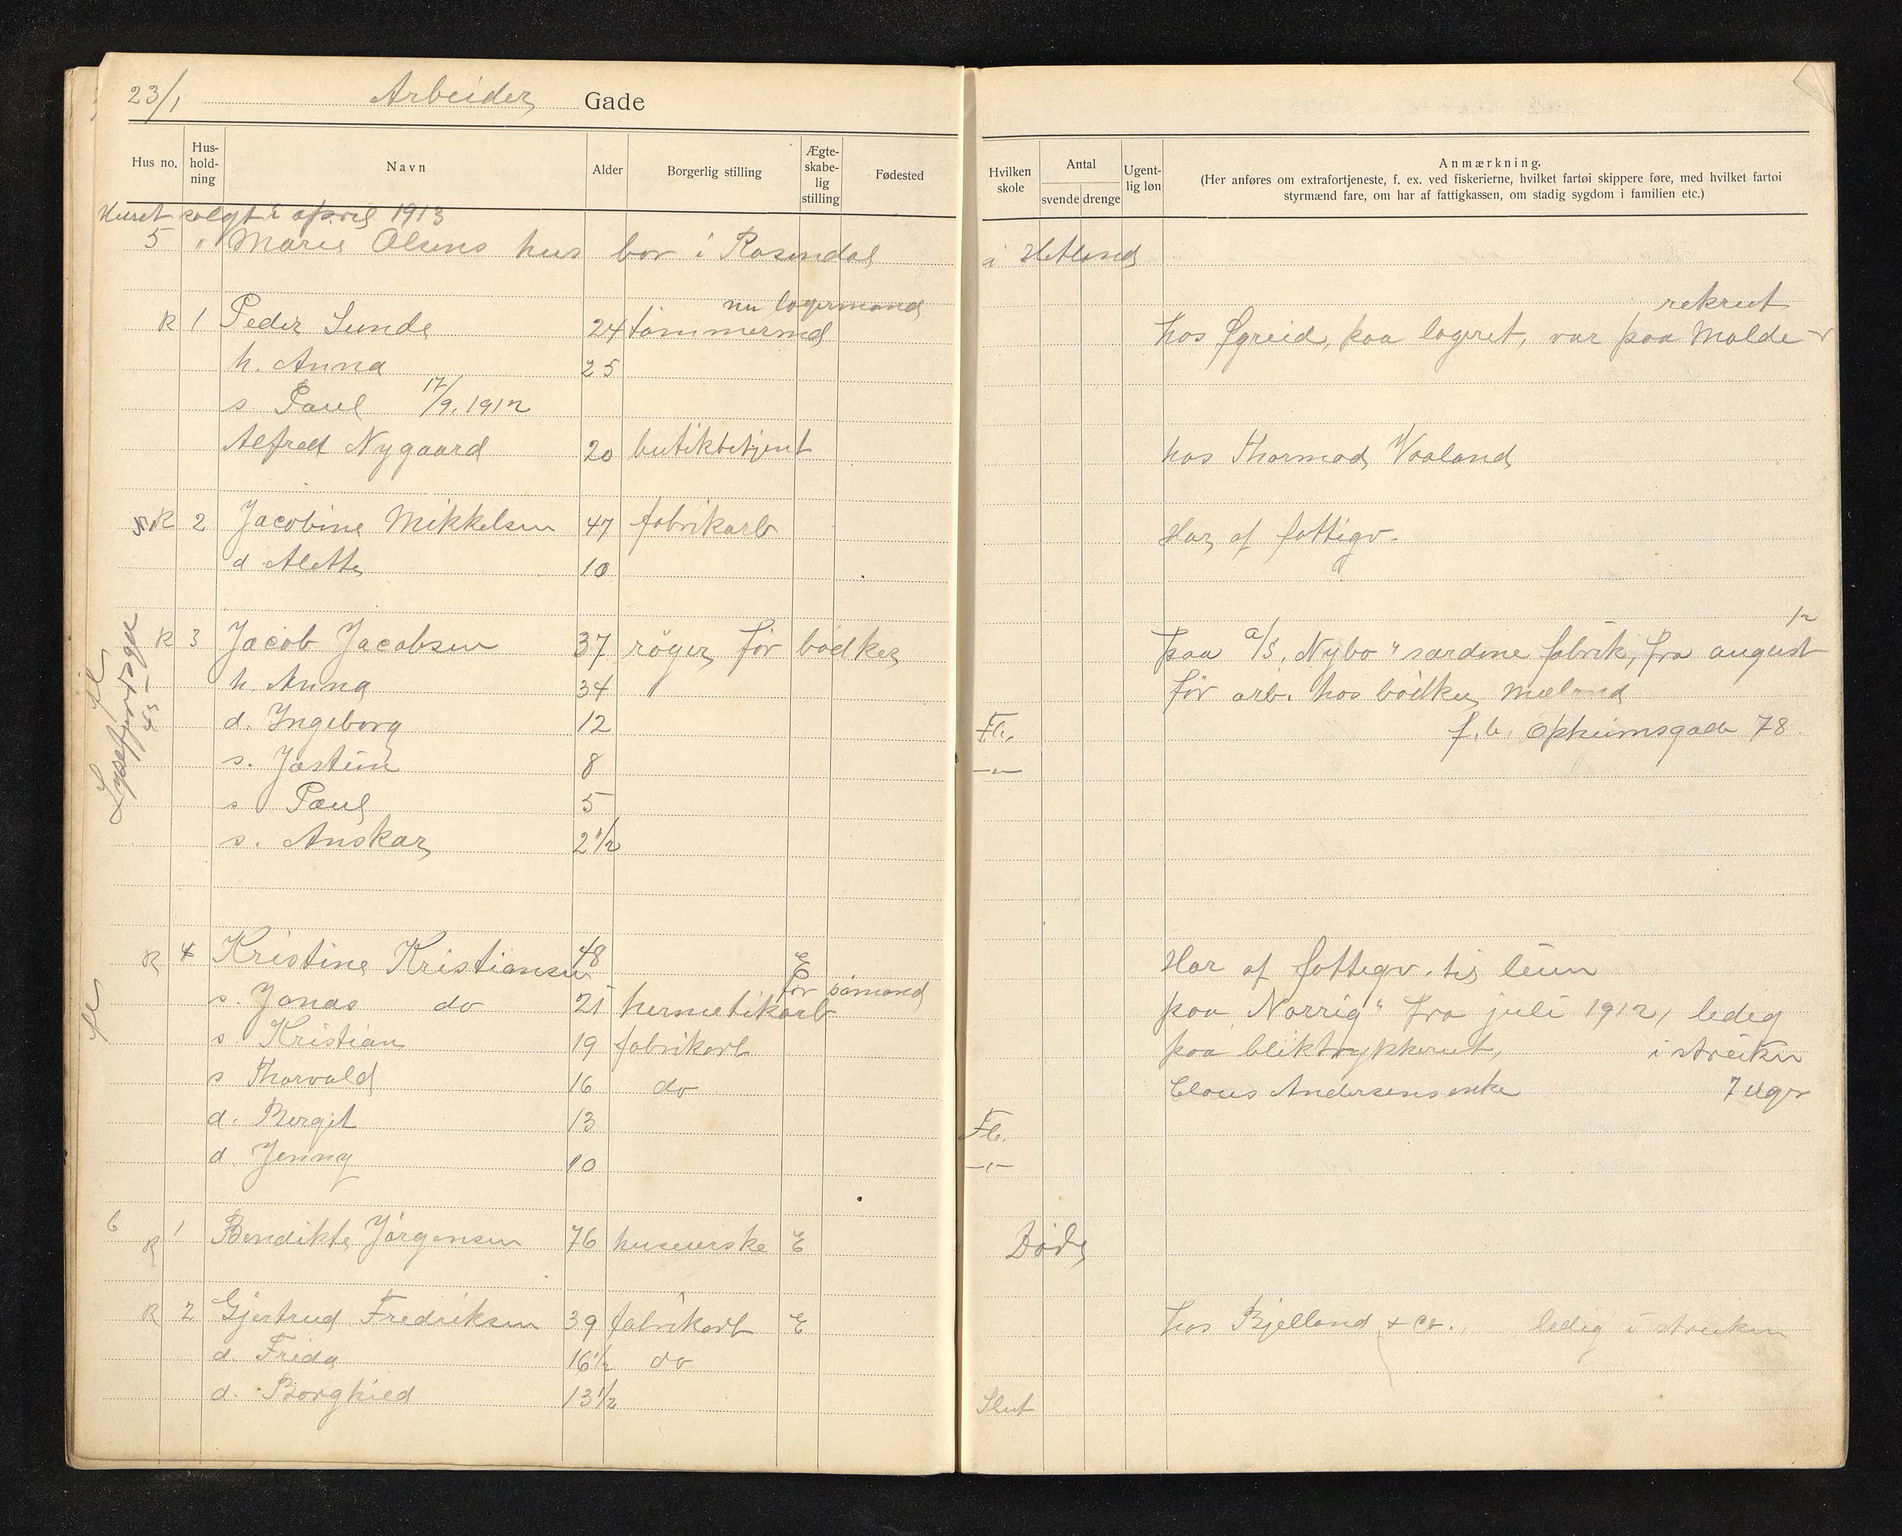 23/1 Arbeider Gade
Hus no. Hus-hold-ning Navn Alder Borgerlig stilling Ægte-skabe-lig stilling Fødested
Hvilken skole Antal svende drenge Ugent-lig løn Anmærkning.
(Her anføres om extrafortjeneste, f. ex. ved fiskerierne, hvilket fartøi skippere føre, med hvilket fartøi
styrmænd fare, om har af fattigkassen, om stadig sygdom i familien etc.)
Huset solgt i april 1913
5 " Marie Olsens hus bor i Rosendal i Hetland
nu lagermand rekrut
R 1 Peder Sunde 24 tømmermd hos Øgreid, paa lageret, var paa Molde
h. Anna 25
s Paul 17/9. 1912
Alfred Nygaard 20 butikbetjent hos Thormod Vaaland
R 2 Jacobine Mikkelsen 47 fabrikarb Har af fattigv.
d Alette 10
12
R 3 Jacob Jacobsen 37 røger, før bødker paa a/s. Nybo" sardine fabrik, fra august
h. Anna 34 før arb. hos bødker Mæland
d. Ingeborg 12 Fb. f.b. Opheimsgade 78
s. Jostein 8 -"-
s Paul 5
s. Anskar 2 1/2
Lysefjordsgd 45
R 4 Kristine Kristiansen 48 E Har af fattigv. til leien
før sømand
s. Jonas do 21 hermetikarb paa "Norrig" fra juli 1912, ledig
s Kristian 19 fabrikarb paa bliktrykkeriet, i streiken
s Thorvald 16 do Claus Andersens enke 7 uger
d. Bergit 13 Fb.
d. Jenny 10 -"-
6 R 1 Bendikte Jørgensen 76 huseierske E Død
R 2 Gjertrud Fredriksen 39 fabrikarb E hos Bjelland & Co., ledig i streiken
d. Frida 16 1/2 do
d. Borghild 13 1/2 Slut